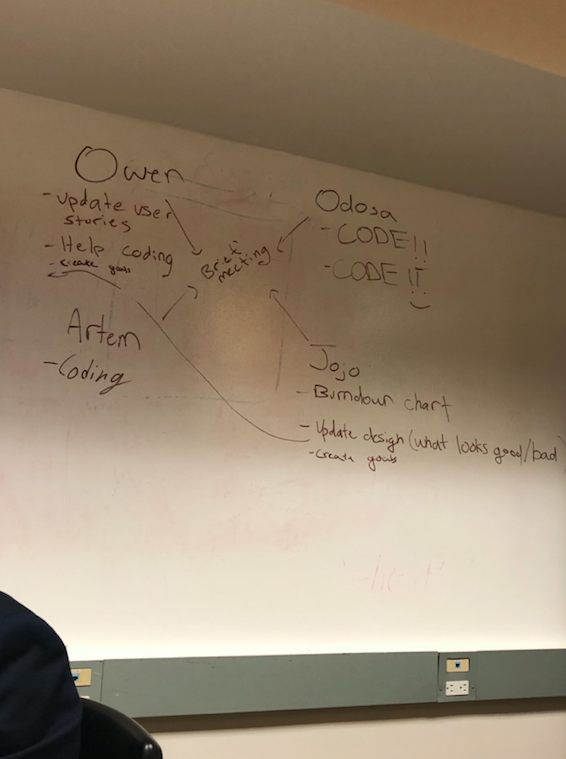 Owen
- update user
stories
- Help coding
- create goals
Brief
meeting
Odosa
- CODE!!
- CODE!!
Artem
- Coding
Jojo
- Burndown chart
- Update design (what looks good/bad)
- Create goals